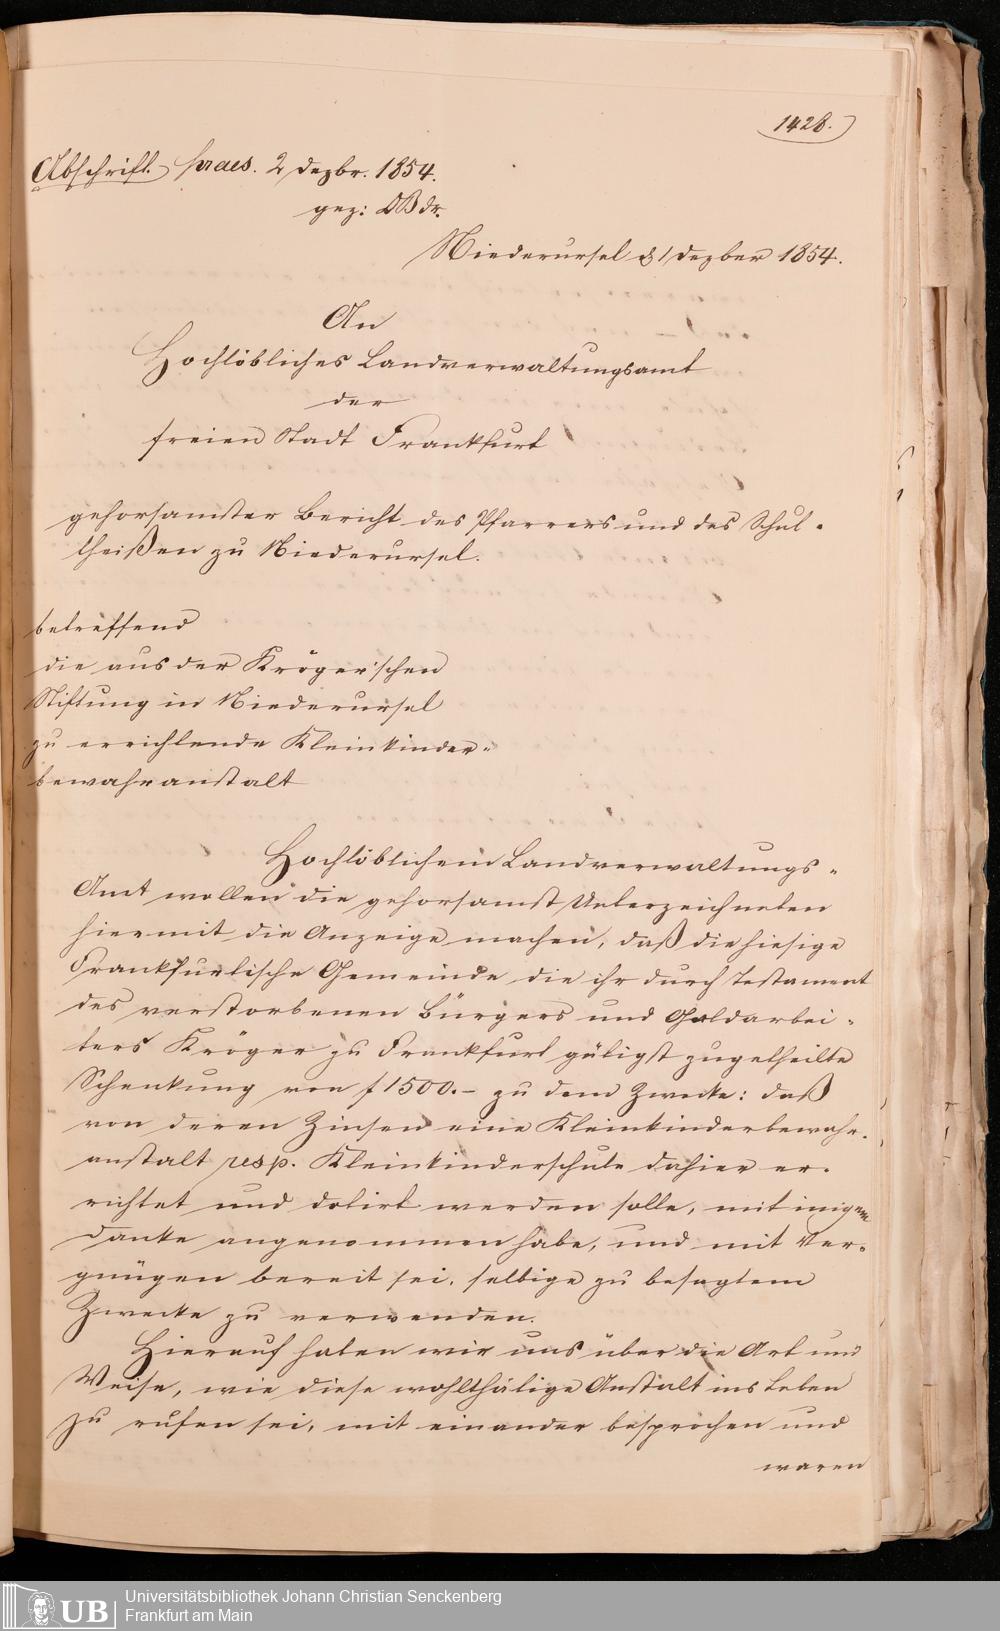 1428.
Abschrift. praes. 2 Dezbr. 1854.
gez: DB dr.
Niederursel d 1 Dezber 1854.
An
Hochlöbliches Landverwaltungsamt
der
freien Stadt Frankfurt
gehorsamster Bericht des Pfarrers und des Schul-
theißen zu Niederursel.
betreffend
die aus der Kröger'schen
Stiftung in Niederursel
zu errichtende Kleinkinder-
bewahranstalt
Hochlöblichem Landverwaltungs-
Amt wollen die gehorsamst Unterzeichneten
hiermit die Anzeige machen, daß die hiesige
Frankfurtische Gemeinde die ihr durch Testament
des verstorbenen Bürgers und Goldarbei-
ters Kröger zu Frankfurt gütigst zugetheilte
Schenkung von f 1500.- zu dem Zwecke: daß
von deren Zinsen eine Kleinkinderbewahr-
anstalt resp. Kleinkinderschule dahier er-
richtet und dotirt werden solle, mit inigem
Danke angenommen habe, und mit Ver-
gnügen bereit sei, selbige zu besagtem
Zwecke zu verwenden.
Hierauf haben wir uns über die Art und
Weise, wie diese wohlthätige Anstalt ins Leben
zu rufen sei, mit einander besprochen und
waren
UB
Universitätsbibliothek Johann Christian Senckenberg
Frankfurt am Main